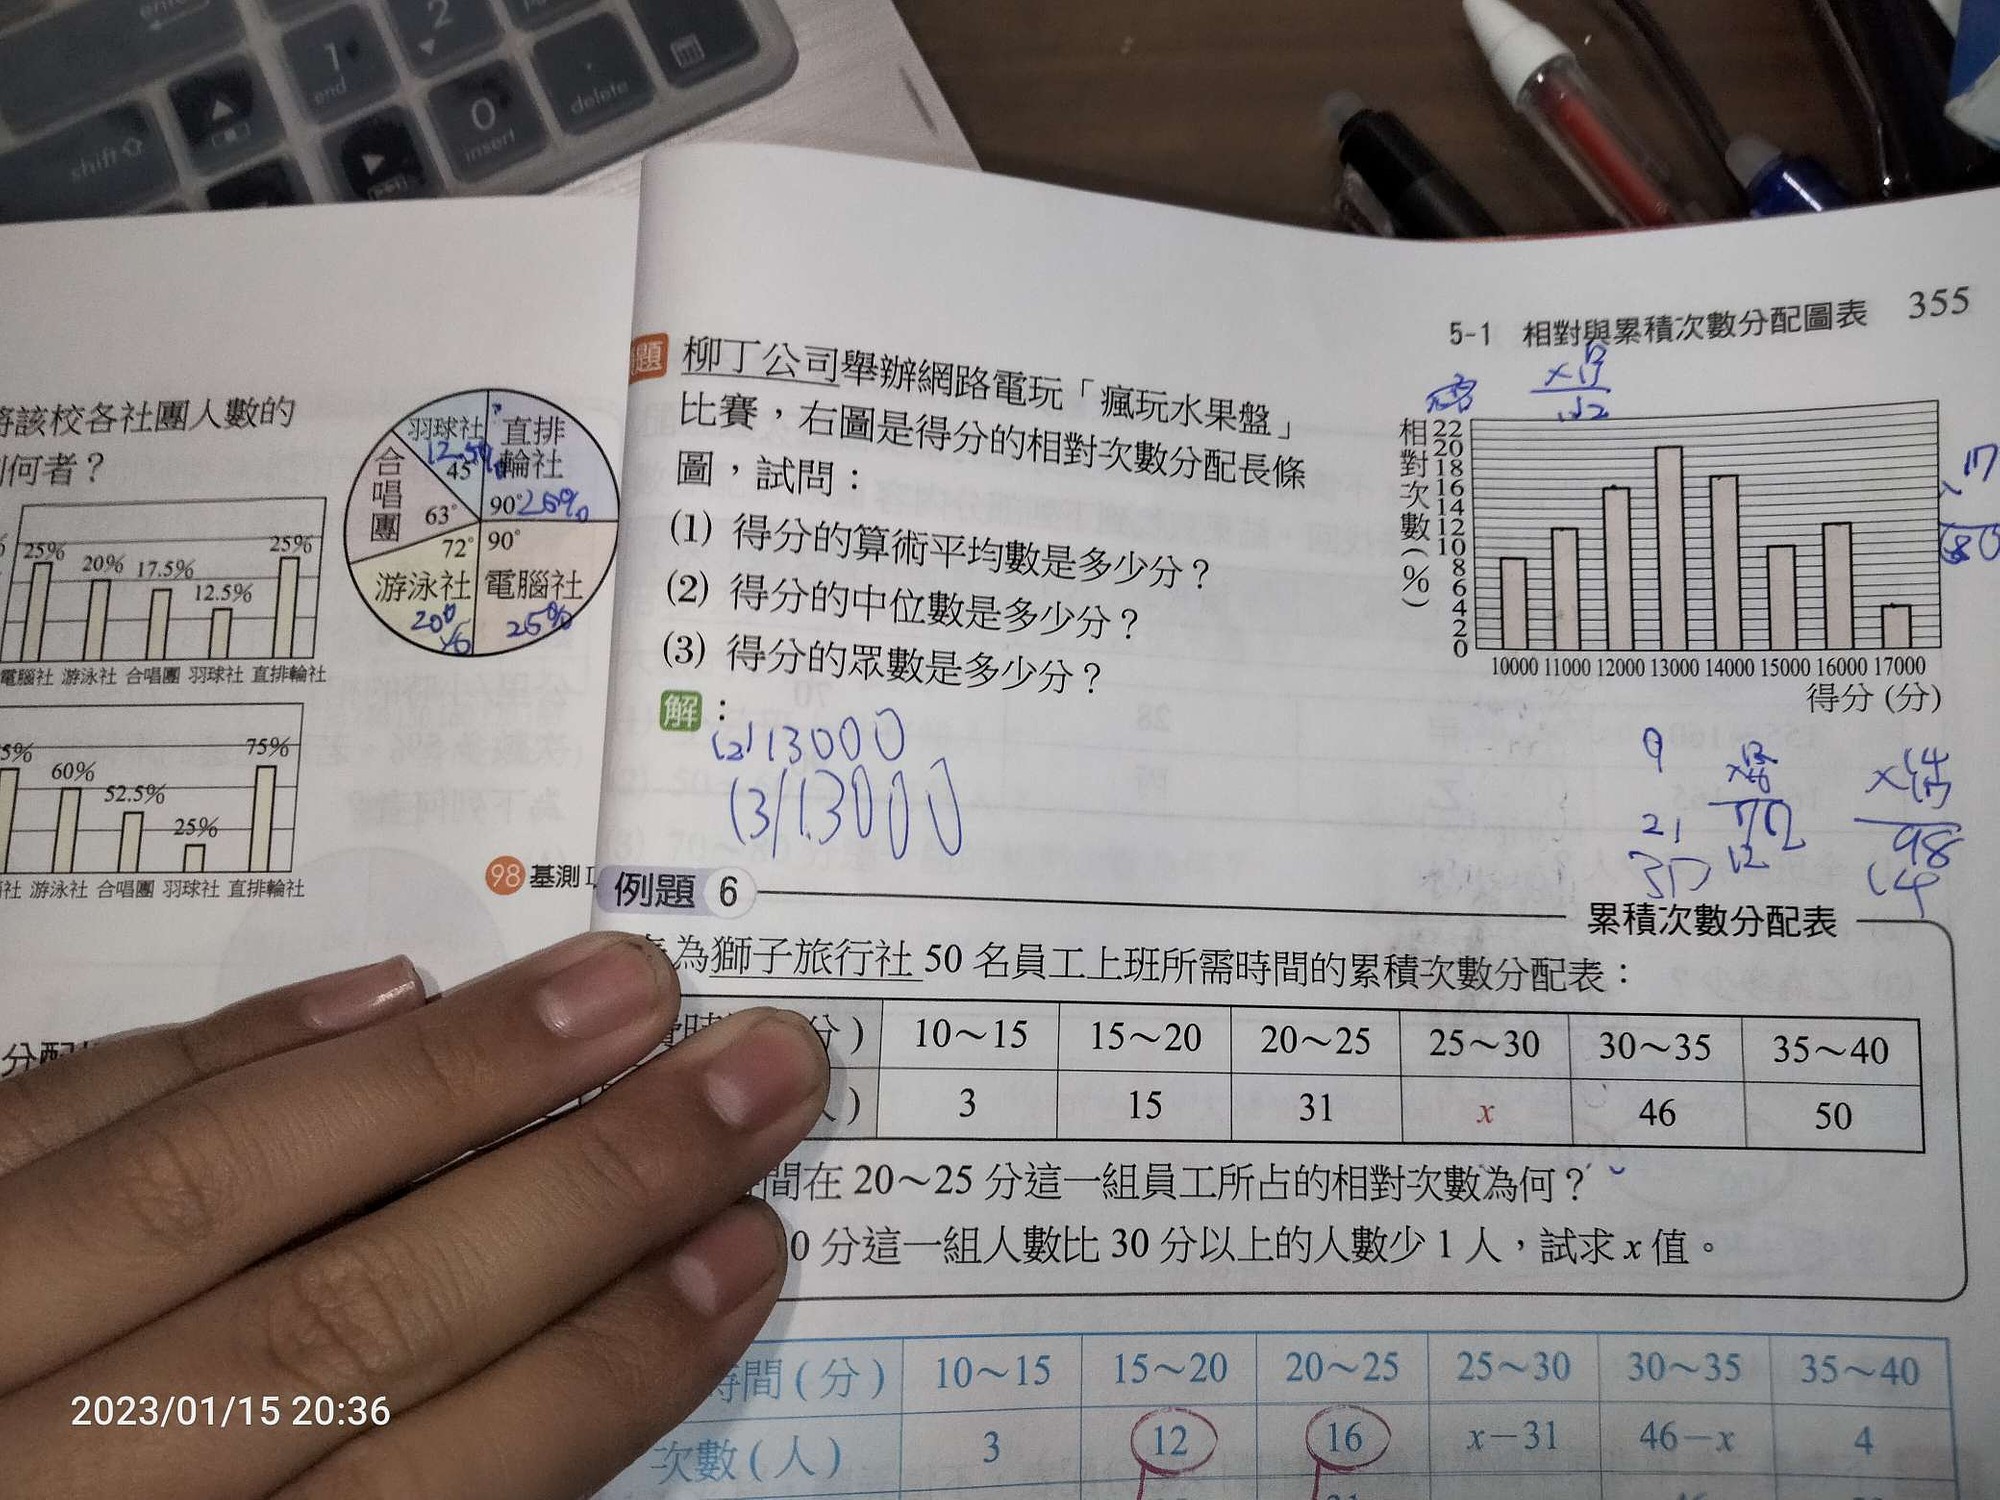 shift
1
end
2
0
insert
delete
5-1 相對與累積次數分配圖表 355
將該校各社團人數的
何者？
25%
20%
17.5%
12.5%
25%
電腦社 游泳社 合唱團 羽球社 直排輪社
羽球社
12.5%
45°
直排
輪社
90° 25%
合唱團
63°
72°
90°
游泳社
20%
電腦社
25%
5%
60%
52.5%
25%
75%
社 游泳社 合唱團 羽球社 直排輪社
98 基測 I
分配
題 柳丁公司舉辦網路電玩「瘋玩水果盤」
比賽，右圖是得分的相對次數分配長條
圖，試問：
(1) 得分的算術平均數是多少分？
(2) 得分的中位數是多少分？
(3) 得分的眾數是多少分？
解：
(2) 13000
(3) 13000
相對次數(%)
22
20
18
16
14
12
10
8
6
4
2
0
10000 11000 12000 13000 14000 15000 16000 17000
得分 (分)
17
9
21
12
98
14
例題 6
累積次數分配表
為獅子旅行社 50 名員工上班所需時間的累積次數分配表：
分) 10～15 15～20 20～25 25～30 30～35 35～40
人) 3 15 31 x 46 50
間在 20～25 分這一組員工所占的相對次數為何？
0 分這一組人數比 30 分以上的人數少 1 人，試求 x 值。
時間(分) 10～15 15～20 20～25 25～30 30～35 35～40
次數(人) 3 12 16 x－31 46－x 4
2023/01/15 20:36